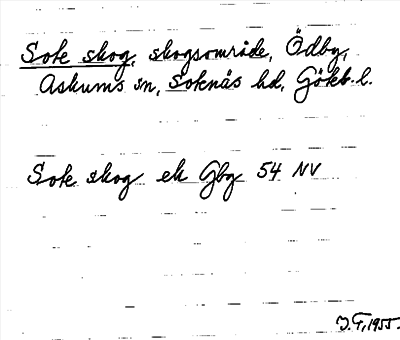 Sote skog, skogsområde, Ödby,
Askums sn, Sotenäs hd, Göteb. l.
Sote skog ek Gbg 54 NV
J. T. 1955.